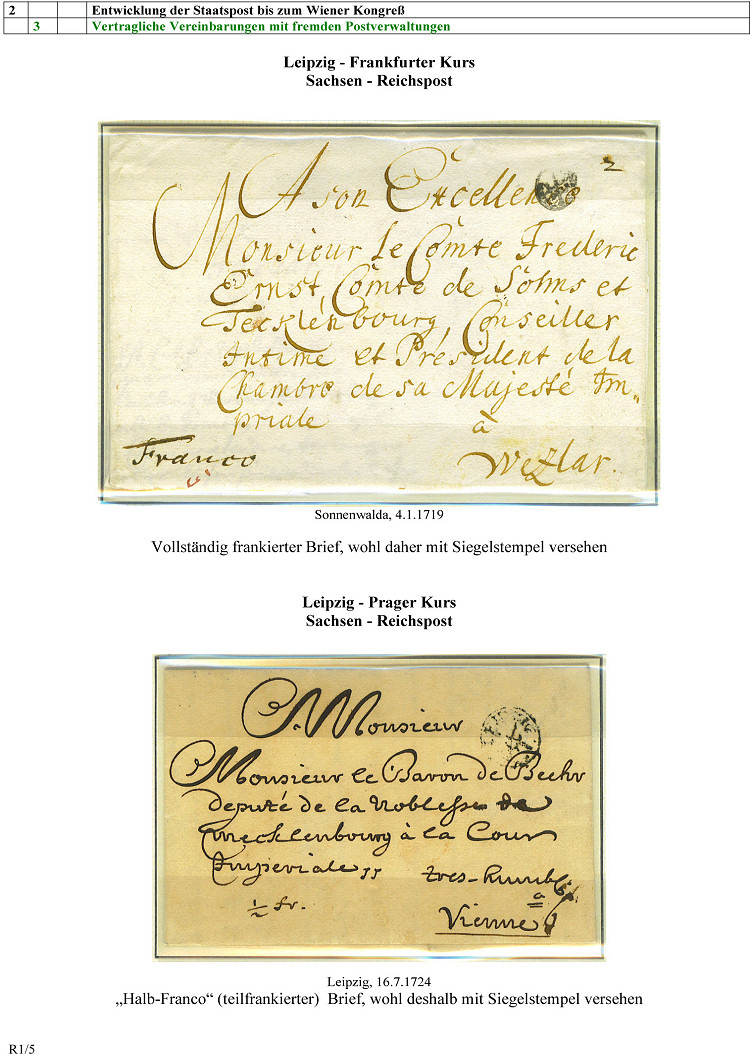 2 Entwicklung der Staatspost bis zum Wiener Kongreß
3 Vertragliche Vereinbarungen mit fremden Postverwaltungen
Leipzig - Frankfurter Kurs
Sachsen - Reichspost
2
A son Excellence
Monsieur le Comte Frederic
Ernst, Comte de Solms et
Tecklénbourg, Conseiller
Intime et Président de la
Chambre de sa Majesté Im„
priale
à
Franco
Wezlar.
Sonnenwalda, 4.1.1719
Vollständig frankierter Brief, wohl daher mit Siegelstempel versehen
Leipzig - Prager Kurs
Sachsen - Reichspost
Monsieur
LEIPZIG
Monsieur le Baron de Beehr
deputé de la Noblesse de
Mecklenbourg à la Cour
Imperiale
½ fr.
a
Vienne
Leipzig, 16.7.1724
„Halb-Franco“ (teilfrankierter) Brief, wohl deshalb mit Siegelstempel versehen
R1/5